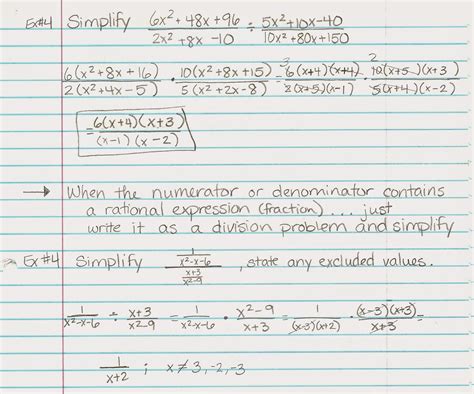 Ex#4 Simplify (6x²+48x+96)/(2x²+8x-10) ÷ (5x²+10x-40)/(10x²+80x+150)
6(x²+8x+16)/2(x²+4x-5) · 10(x²+8x+15)/5(x²+2x-8) = 3 6(x+4)(x+4)/2(x+5)(x-1) · 2 10(x+5)(x+3)/5(x+4)(x-2)
= 6(x+4)(x+3)/(x-1)(x-2)
→ When the numerator or denominator contains
a rational expression (fraction)... just
write it as a division problem and simplify
Ex#4 Simplify (1/(x²-x-6))/((x+3)/(x²-9)), state any excluded values.
1/(x²-x-6) ÷ (x+3)/(x²-9) = 1/(x²-x-6) · (x²-9)/(x+3) = 1/(x-3)(x+2) · (x-3)(x+3)/(x+3) =
1/(x+2) ; x≠3,-2,-3